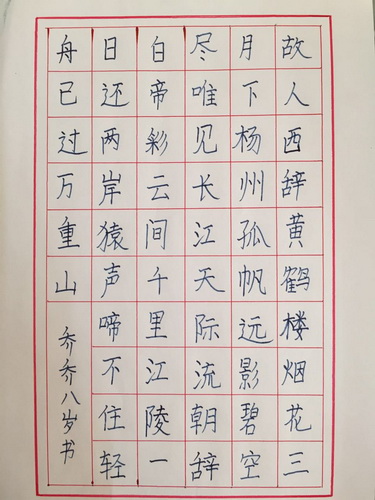 故人西辞黄鹤楼烟花三
月下杨州孤帆远影碧空
尽唯见长江天际流朝辞
白帝彩云间千里江陵一
日还两岸猿声啼不住轻
舟已过万重山
乔乔八岁书